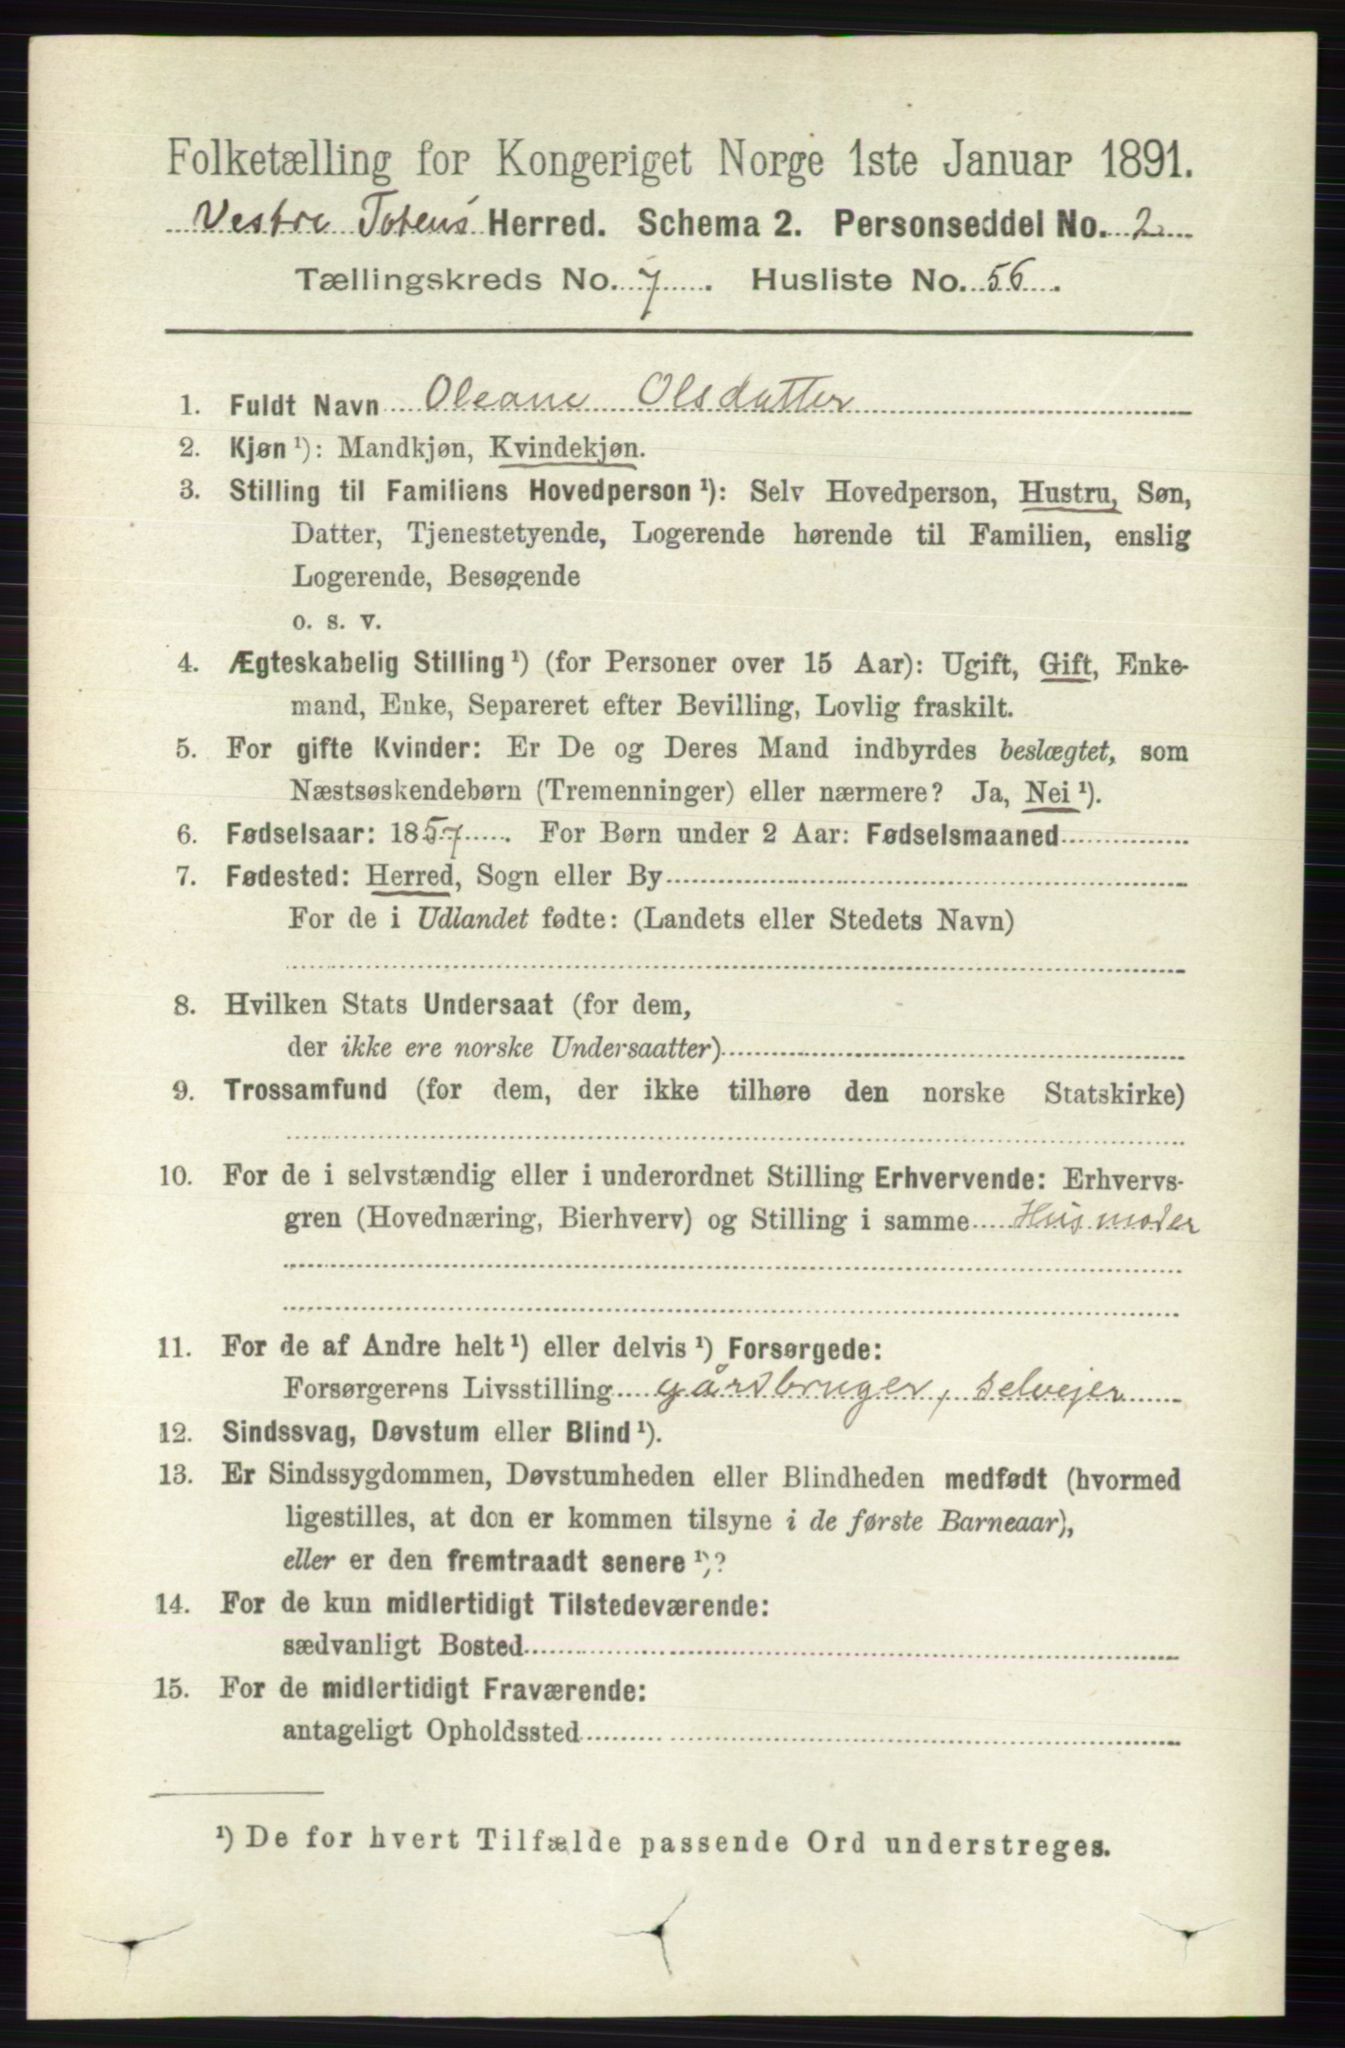 Folketælling for Kongeriget Norge 1ste Januar 1891.
Vestre Totens Herred. Schema 2. Personseddel No. 2
Tællingskreds No. 7. Husliste No. 56.
1. Fuldt Navn Oleane Olsdatter
2. Kjøn ¹): Mandkjøn, Kvindekjøn.
3. Stilling til Familiens Hovedperson ¹): Selv Hovedperson, Hustru, Søn,
Datter, Tjenestetyende, Logerende hørende til Familien, enslig
Logerende, Besøgende
o. s. v.
4. Ægteskabelig Stilling ¹) (for Personer over 15 Aar): Ugift, Gift, Enke-
mand, Enke, Separeret efter Bevilling, Lovlig fraskilt.
5. For gifte Kvinder: Er De og Deres Mand indbyrdes beslægtet, som
Næstsøskendebørn (Tremenninger) eller nærmere? Ja, Nei ¹).
6. Fødselsaar: 1857. For Børn under 2 Aar: Fødselsmaaned
7. Fødested: Herred, Sogn eller By
For de i Udlandet fødte: (Landets eller Stedets Navn)
8. Hvilken Stats Undersaat (for dem,
der ikke ere norske Undersaatter)
9. Trossamfund (for dem, der ikke tilhøre den norske Statskirke)
10. For de i selvstændig eller i underordnet Stilling Erhvervende: Erhvervs-
gren (Hovednæring, Bierhverv) og Stilling i samme Husmoder
11. For de af Andre helt ¹) eller delvis ¹) Forsørgede:
Forsørgerens Livsstilling gårdbruger, selvejer
12. Sindssvag, Døvstum eller Blind ¹).
13. Er Sindssygdommen, Døvstumheden eller Blindheden medfødt (hvormed
ligestilles, at den er kommen tilsyne i de første Barneaar),
eller er den fremtraadt senere ¹)?
14. For de kun midlertidigt Tilstedeværende:
sædvanligt Bosted
15. For de midlertidigt Fraværende:
antageligt Opholdssted
¹) De for hvert Tilfælde passende Ord understreges.